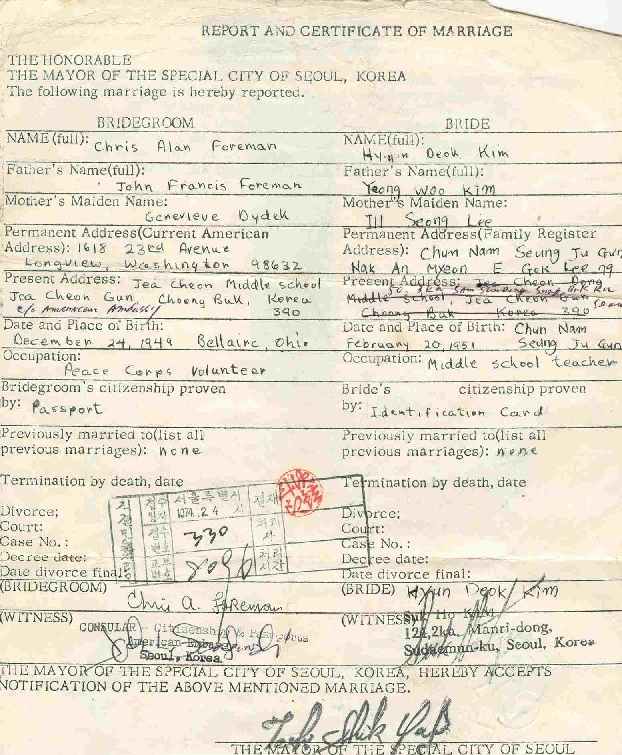 REPORT AND CERTIFICATE OF MARRIAGE
THE HONORABLE
THE MAYOR OF THE SPECIAL CITY OF SEOUL, KOREA
The following marriage is hereby reported.
BRIDEGROOM
NAME (full): Chris Alan Foreman
Father's Name(full):
John Francis Foreman
Mother's Maiden Name:
Genevieve Dydek
Permanent Address(Current American
Address): 1618 23rd Avenue
Longview, Washington 98632
Present Address: Jea Cheon Middle school
Jea Cheon Gun, Choong Buk, Korea
c/o American Embassy 390
Date and Place of Birth:
December 24, 1949 Bellaire, Ohio
Occupation:
Peace Corps Volunteer
Bridegroom's citizenship proven
by: Passport
Previously married to(list all
previous marriages): none
Termination by death, date
Divorce:
Court:
Case No.:
Decree date:
Date divorce final:
(BRIDEGROOM)
Chris A. Foreman
(WITNESS)
CONSULAR
American Embassy
Seoul, Korea
BRIDE
NAME(full):
Hyun Deok Kim
Father's Name(full):
Yeong Woo Kim
Mother's Maiden Name:
Ill Seong Lee
Permanent Address(Family Register
Address): Chun Nam Seung Ju Gun
Nak An Myeon E Gok Lee 79
Present Address: Jea Cheon
Middle School, Jea Cheon Gun
Choong Buk Korea 390
Date and Place of Birth: Chun Nam
February 20, 1951 Seung Ju Gun
Occupation: Middle school teacher
Bride's citizenship proven
by: Identification Card
Previously married to(list all
previous marriages): none
Termination by death, date
Divorce:
Court:
Case No.:
Decree date:
Date divorce final:
(BRIDE) Hyun Deok Kim
(WITNESS) Suk Ho KAM
124,2ka, Manri-dong,
Sudaemun-ku, Seoul, Korea
서울특별시
1974.2 4
330
8096
THE MAYOR OF THE SPECIAL CITY OF SEOUL, KOREA, HEREBY ACCEPTS
NOTIFICATION OF THE ABOVE MENTIONED MARRIAGE.
THE MAYOR OF THE SPECIAL CITY OF SEOUL